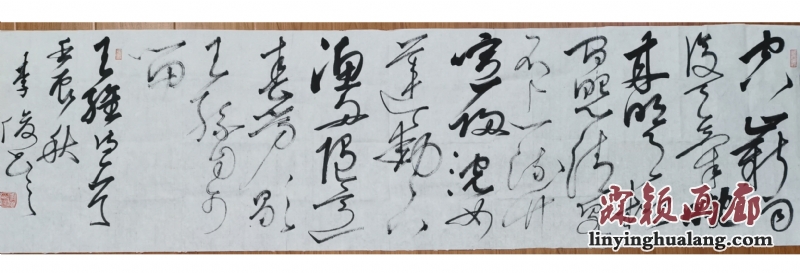 空山新雨
后天气晚
来秋明月松
间照清泉
石上流竹
喧归浣女
莲动下
渔舟随意
春芳歇
王孙自可
留
王维诗一首
壬辰秋
霖颖画廊
linyinghualang.com